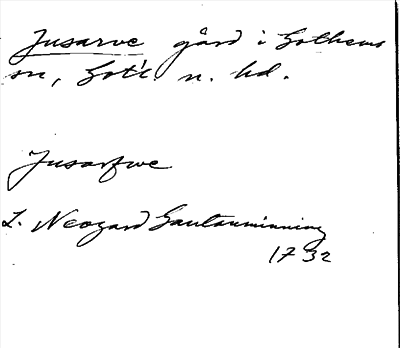 Jusarve gård i Gothems
sn, Gotl. n. hd.
Jusarfwe
L. Neogard Gautauminning
1732